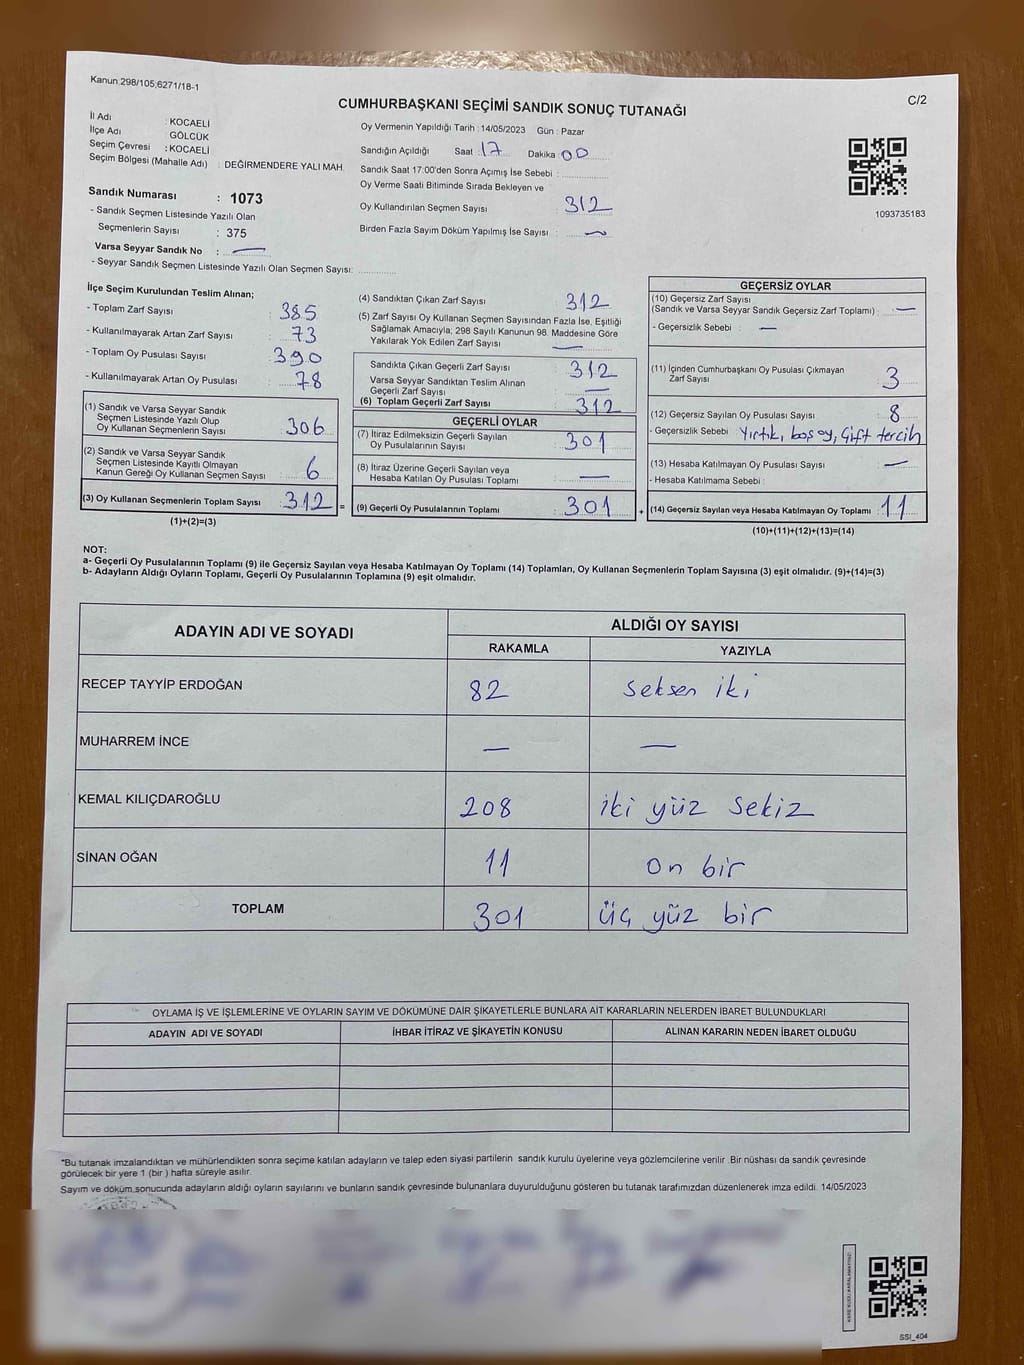 Kanun 298/105,6271/18-1
C/2
CUMHURBAŞKANI SEÇİMİ SANDIK SONUÇ TUTANAĞI
İl Adı : KOCAELİ
İlçe Adı : GÖLCÜK
Seçim Çevresi : KOCAELİ
Seçim Bölgesi (Mahalle Adı) : DEĞİRMENDERE YALI MAH.
Sandık Numarası : 1073
- Sandık Seçmen Listesinde Yazılı Olan
Seçmenlerin Sayısı : 375
Varsa Seyyar Sandık No : —
- Seyyar Sandık Seçmen Listesinde Yazılı Olan Seçmen Sayısı:
Oy Vermenin Yapıldığı Tarih : 14/05/2023 Gün : Pazar
Sandığın Açıldığı Saat : 17 Dakika : 00
Sandık Saat 17:00'den Sonra Açımış İse Sebebi :
Oy Verme Saati Bitiminde Sırada Bekleyen ve
Oy Kullandırılan Seçmen Sayısı : 312
Birden Fazla Sayım Döküm Yapılmış İse Sayısı : —
1093735183
İlçe Seçim Kurulundan Teslim Alınan;
- Toplam Zarf Sayısı : 385
- Kullanılmayarak Artan Zarf Sayısı : 73
- Toplam Oy Pusulası Sayısı : 390
- Kullanılmayarak Artan Oy Pusulası : 78
(1) Sandık ve Varsa Seyyar Sandık
Seçmen Listesinde Yazılı Olup
Oy Kullanan Seçmenlerin Sayısı : 306
(2) Sandık ve Varsa Seyyar Sandık
Seçmen Listesinde Kayıtlı Olmayan
Kanun Gereği Oy Kullanan Seçmen Sayısı : 6
(3) Oy Kullanan Seçmenlerin Toplam Sayısı : 312 =
(1)+(2)=(3)
(4) Sandıktan Çıkan Zarf Sayısı : 312
(5) Zarf Sayısı Oy Kullanan Seçmen Sayısından Fazla İse, Eşitliği
Sağlamak Amacıyla; 298 Sayılı Kanunun 98. Maddesine Göre
Yakılarak Yok Edilen Zarf Sayısı : —
Sandıkta Çıkan Geçerli Zarf Sayısı : 312
Varsa Seyyar Sandıktan Teslim Alınan
Geçerli Zarf Sayısı : —
(6) Toplam Geçerli Zarf Sayısı : 312
GEÇERLİ OYLAR
(7) İtiraz Edilmeksizin Geçerli Sayılan
Oy Pusulalarının Sayısı : 301
(8) İtiraz Üzerine Geçerli Sayılan veya
Hesaba Katılan Oy Pusulası Toplamı : —
(9) Geçerli Oy Pusulalarının Toplamı : 301 +
GEÇERSİZ OYLAR
(10) Geçersiz Zarf Sayısı
(Sandık ve Varsa Seyyar Sandık Geçersiz Zarf Toplamı) : —
- Geçersizlik Sebebi : —
(11) İçinden Cumhurbaşkanı Oy Pusulası Çıkmayan
Zarf Sayısı : 3
(12) Geçersiz Sayılan Oy Pusulası Sayısı : 8
- Geçersizlik Sebebi : Yırtık, boş oy, Çift tercih
(13) Hesaba Katılmayan Oy Pusulası Sayısı : —
- Hesaba Katılmama Sebebi :
(14) Geçersiz Sayılan veya Hesaba Katılmayan Oy Toplamı : 11
(10)+(11)+(12)+(13)=(14)
NOT:
a- Geçerli Oy Pusulalarının Toplamı (9) ile Geçersiz Sayılan veya Hesaba Katılmayan Oy Toplamı (14) Toplamları, Oy Kullanan Seçmenlerin Toplam Sayısına (3) eşit olmalıdır. (9)+(14)=(3)
b- Adayların Aldığı Oyların Toplamı, Geçerli Oy Pusulalarının Toplamına (9) eşit olmalıdır.
ADAYIN ADI VE SOYADI ALDIĞI OY SAYISI
RAKAMLA YAZIYLA
RECEP TAYYİP ERDOĞAN 82 seksen iki
MUHARREM İNCE — —
KEMAL KILIÇDAROĞLU 208 iki yüz sekiz
SİNAN OĞAN 11 on bir
TOPLAM 301 üç yüz bir
OYLAMA İŞ VE İŞLEMLERİNE VE OYLARIN SAYIM VE DÖKÜMÜNE DAİR ŞİKAYETLERLE BUNLARA AİT KARARLARIN NELERDEN İBARET BULUNDUKLARI
ADAYIN ADI VE SOYADI İHBAR İTİRAZ VE ŞİKAYETİN KONUSU ALINAN KARARIN NEDEN İBARET OLDUĞU
*Bu tutanak imzalandıktan ve mühürlendikten sonra seçime katılan adayların ve talep eden siyasi partilerin sandık kurulu üyelerine veya gözlemcilerine verilir. Bir nüshası da sandık çevresinde
görülecek bir yere 1 (bir ) hafta süreyle asılır.
Sayım ve döküm sonucunda adayların aldığı oyların sayılarını ve bunların sandık çevresinde bulunanlara duyurulduğunu gösteren bu tutanak tarafımızdan düzenlenerek imza edildi. 14/05/2023
SSI_404